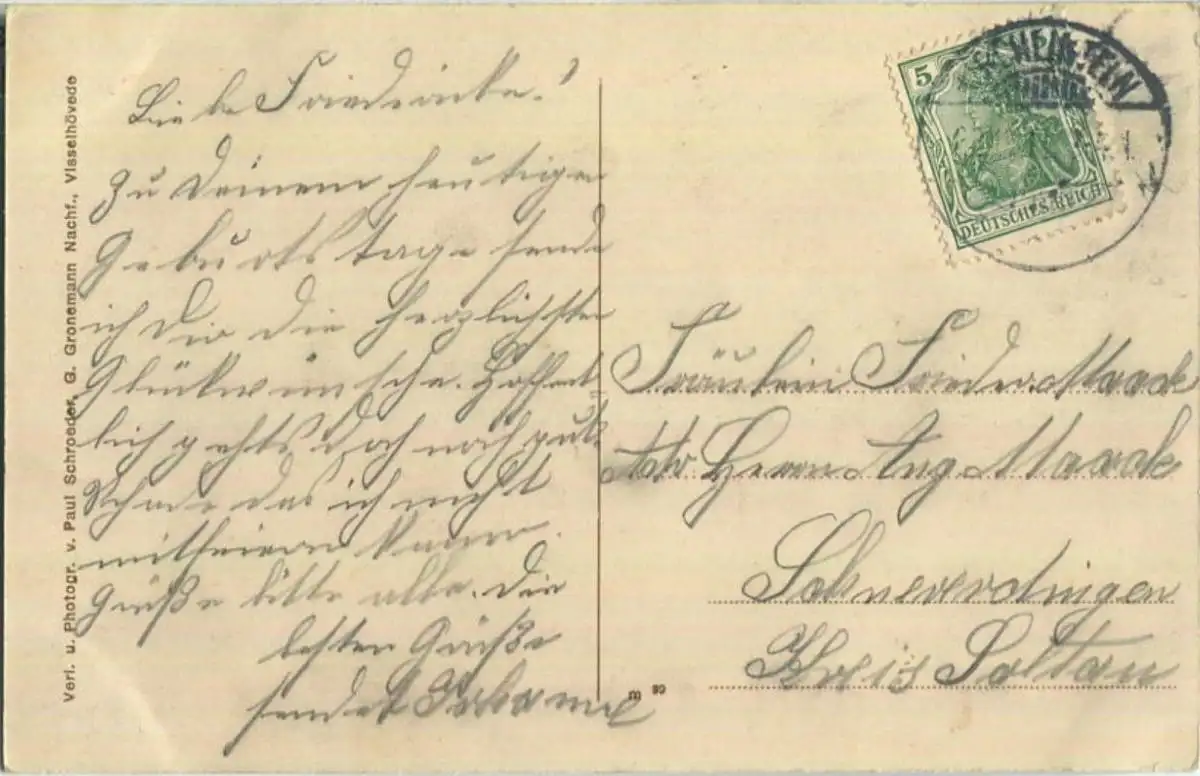 Verl. u. Photogr. v. Paul Schroeder, G. Gronemann Nachf., Visselhövede
Liebe Friederike!
Zu Deinem heutigen
Geburtstage sende
ich Dir die herzlichsten
Glückwünsche. Hoffent
lich gehts Doch noch gut.
Schade das ich nicht
mitfeiern kann.
Grüße bitte alle. Die
besten Grüße
sendet
5
DEUTSCHES REICH
Fräulein Frieder. Marck
Adr. Herrn Aug Marck
Schneverdingen
Kreis Soltau
m 90